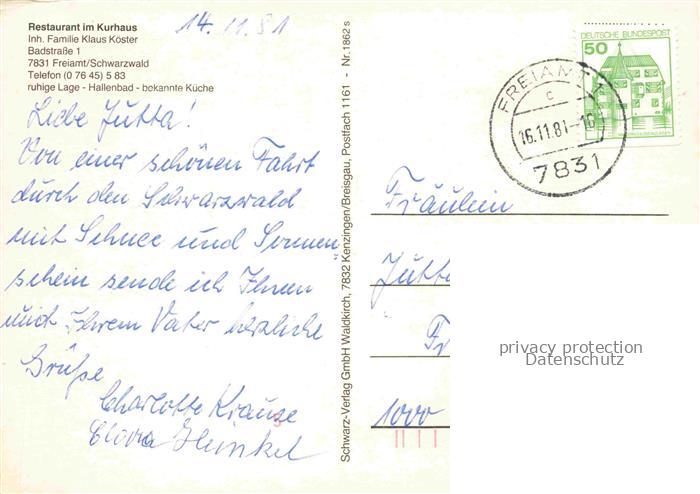 Restaurant im Kurhaus
Inh. Familie Klaus Köster
Badstraße 1
7831 Freiamt/Schwarzwald
Telefon (0 76 45) 5 83
ruhige Lage - Hallenbad - bekannte Küche
14.11.81
Liebe Jutta!
Von einer schönen Fahrt
durch den Schwarzwald
mit Schnee und Sonnen
schein sende ich Ihnen
und Ihrem Vater herzliche
Grüße
Charlotte Krause
Heinkel
Schwarz-Verlag GmbH Waldkirch, 7832 Kenzingen/Breisgau, Postfach 1161 - Nr. 1862 s
DEUTSCHE BUNDESPOST
50
FREIAMT 1
c
16.11.81-16
7831
Fräulein
Jutta
Fr
1000
privacy protection
Datenschutz